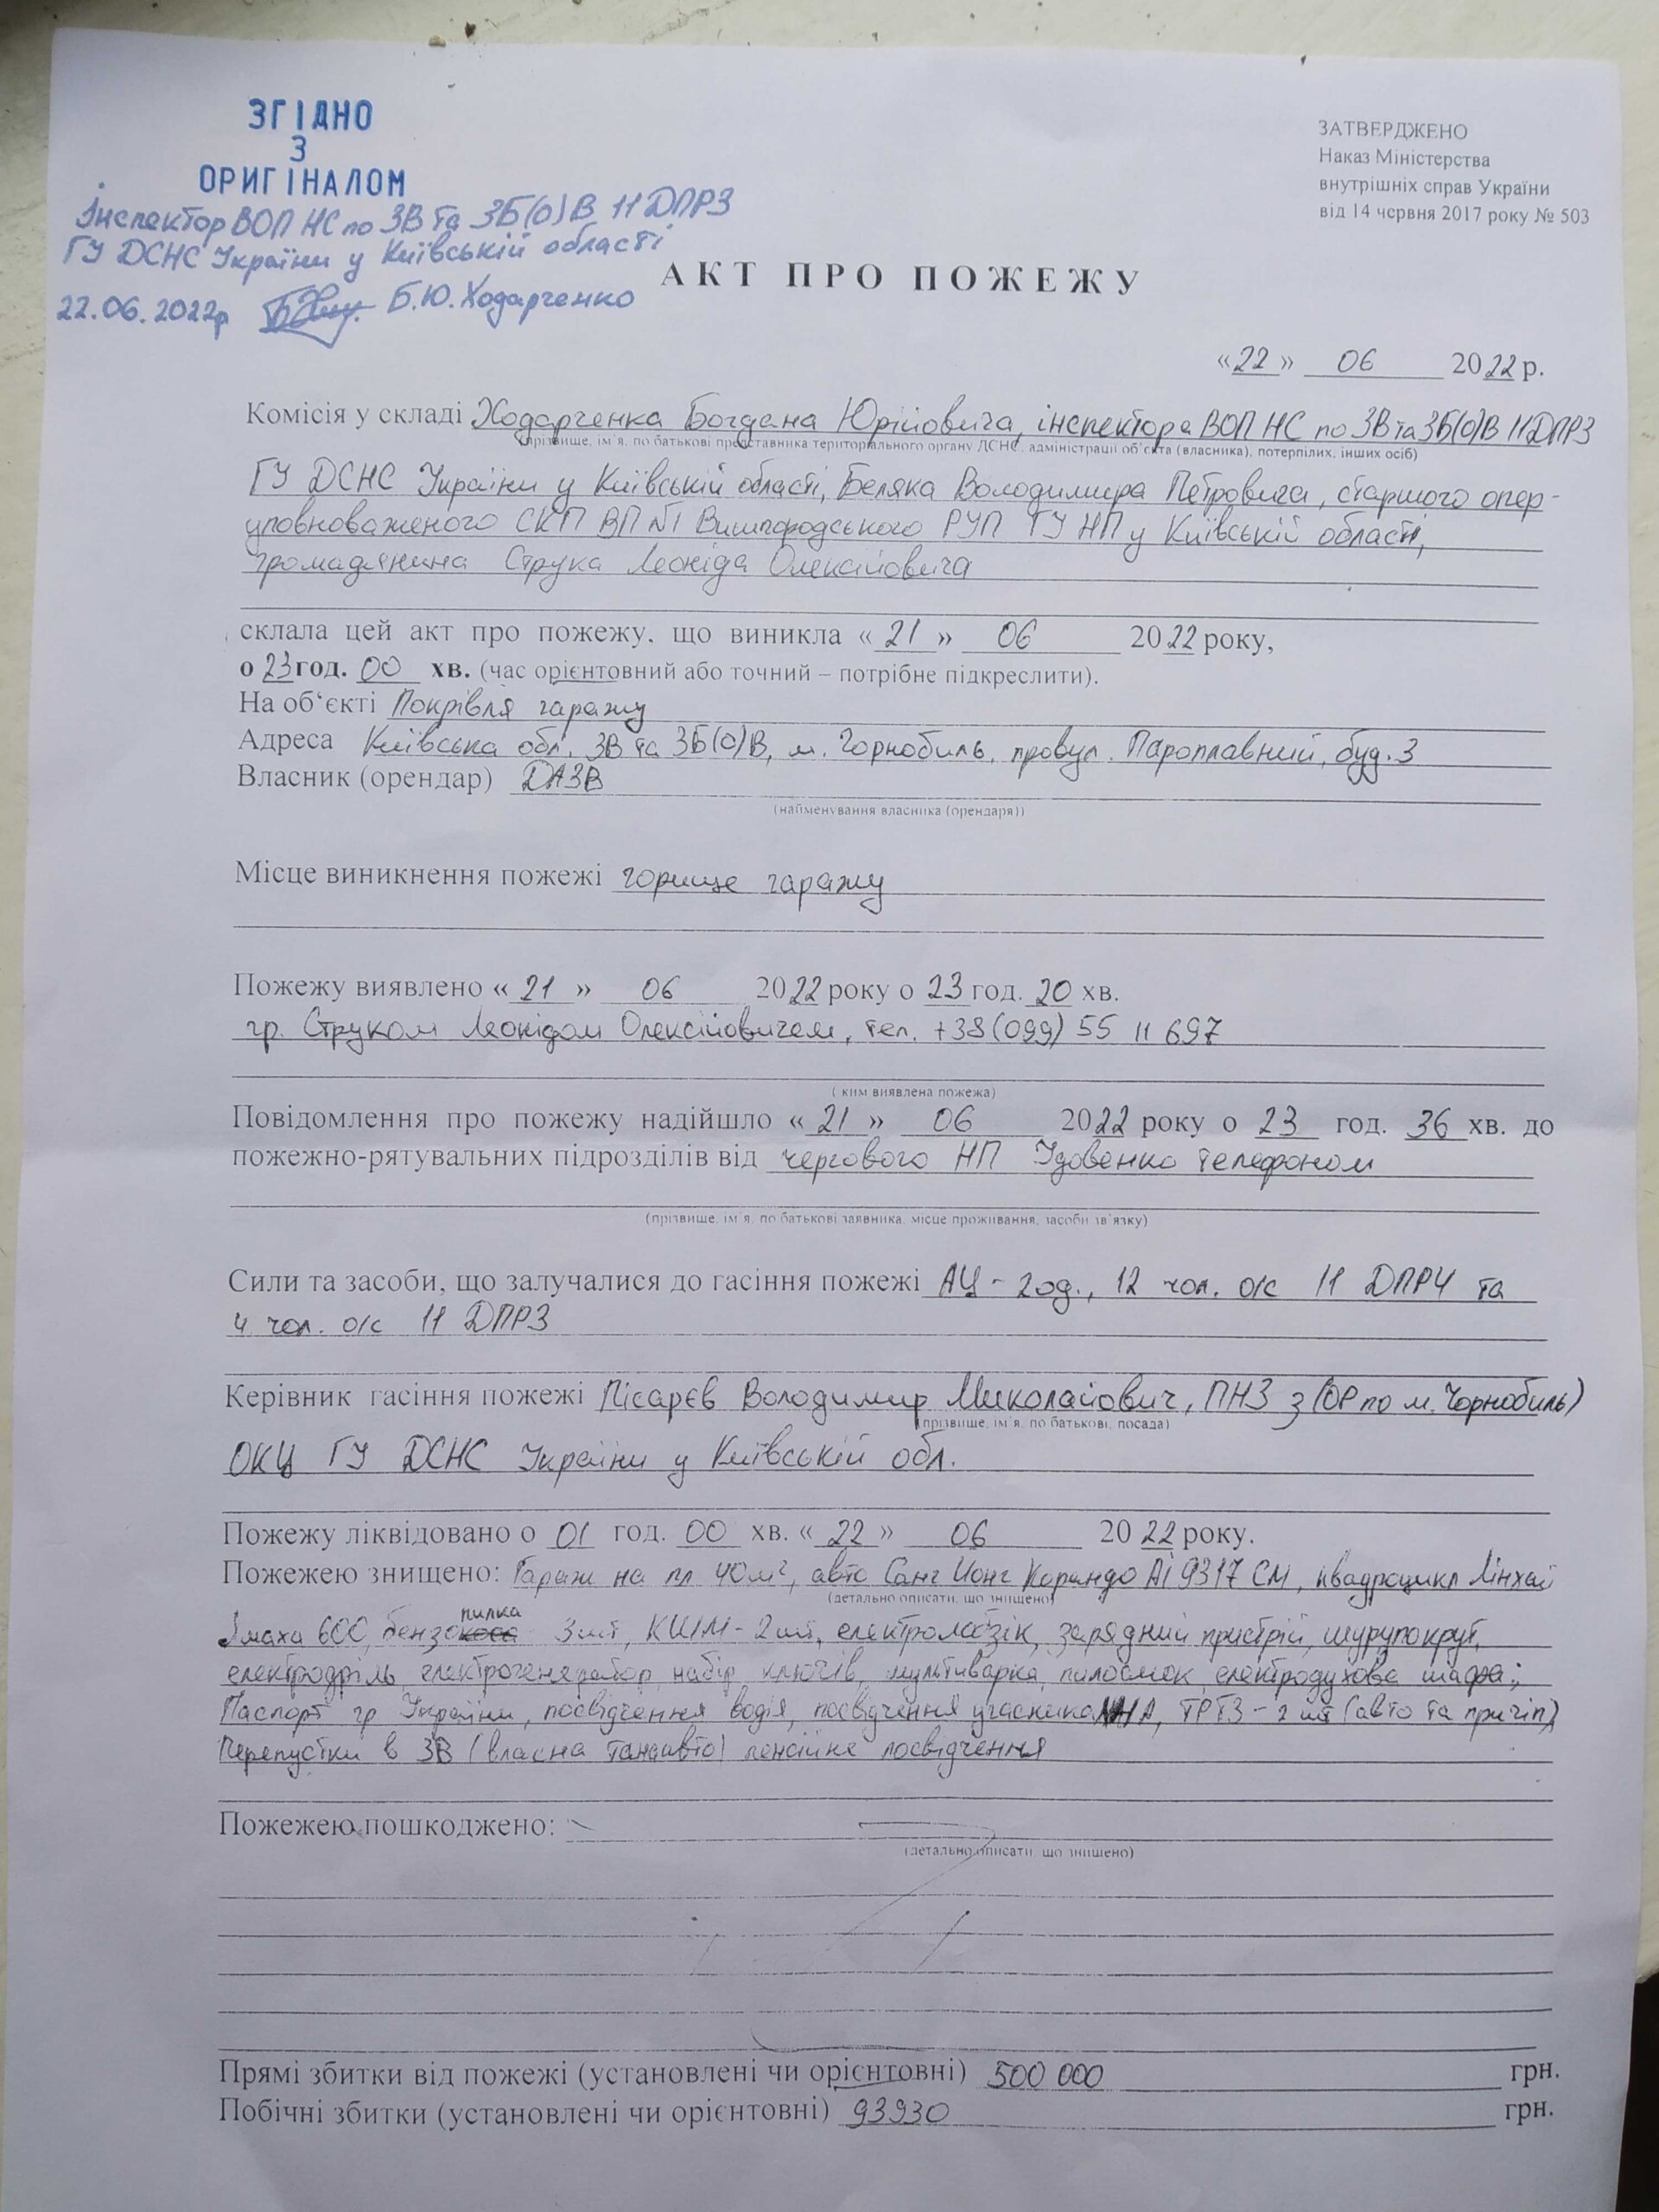 ЗГІДНО
З
ОРИГІНАЛОМ
Інспектор ВОП НС по ЗВ та ЗБ(о)В 11 ДПРЗ
ГУ ДСНС України у Київській області
22.06.2022р Б.Ю. Ходарченко
ЗАТВЕРДЖЕНО
Наказ Міністерства
внутрішніх справ України
від 14 червня 2017 року № 503
АКТ ПРО ПОЖЕЖУ
«22» 06 2022 р.
Комісія у складі Ходарченка Богдана Юрійовича, інспектора ВОП НС по ЗВ та ЗБ(о)В 11 ДПРЗ
(прізвище, ім'я, по батькові представника територіального органу ДСНС, адміністрації об'єкта (власника), потерпілих, інших осіб)
ГУ ДСНС України у Київській області, Беляка Володимира Петровича, старшого опер-
уповноваженого СКП ВП №1 Вишгородського РУП ГУ НП у Київській області,
громадянина Струка Леоніда Олексійовича
склала цей акт про пожежу, що виникла «21» 06 2022 року,
о 23 год. 00 хв. (час орієнтовний або точний – потрібне підкреслити).
На об‘єкті Покрівля гаражу
Адреса Київська обл. ЗВ та ЗБ(о)В, м. Чорнобиль, провул. Пароплавний, буд. 3
Власник (орендар) ДАЗВ
(найменування власника (орендаря))
Місце виникнення пожежі горище гаражу
Пожежу виявлено «21» 06 2022 року о 23 год. 20 хв.
гр. Струком Леонідом Олексійовичем, тел. +38(099) 55 11 697
( ким виявлена пожежа)
Повідомлення про пожежу надійшло «21» 06 2022 року о 23 год. 36 хв. до
пожежно-рятувальних підрозділів від чергового НП Удовенко телефоном
(прізвище, ім'я, по батькові заявника, місце проживання, засоби зв'язку)
Сили та засоби, що залучалися до гасіння пожежі АЦ - 2 од., 12 чол. о/с 11 ДПРЧ та
4 чол. о/с 11 ДПРЗ
Керівник гасіння пожежі Пісарєв Володимир Миколайович, ПНЗ з (ОР по м. Чорнобиль)
(прізвище, ім'я, по батькові, посада)
ОКЦ ГУ ДСНС України у Київській обл.
Пожежу ліквідовано о 01 год. 00 хв. «22» 06 2022 року.
Пожежею знищено: Гараж на пл 40м², авто Санг Йонг Корандо АІ 9317 СМ, квадроцикл Лінхай
(детально описати, що знищено)
Ямаха 600, бензопилка 3 шт, КШМ - 2 шт, електролобзік, зарядний пристрій, шурупокрут,
електродріль, електрогенератор, набір ключів, мультиварка, пилосмок, електродухова шафа;
Паспорт гр України, посвідчення водія, посвідчення учасника ЛНА, ТРТЗ - 2 шт (авто та причіп)
Перепустки в ЗВ (власна та на авто) пенсійне посвідчення
Пожежею пошкоджено:
(детально описати, що знищено)
Прямі збитки від пожежі (установлені чи орієнтовні) 500 000 грн.
Побічні збитки (установлені чи орієнтовні) 93930 грн.